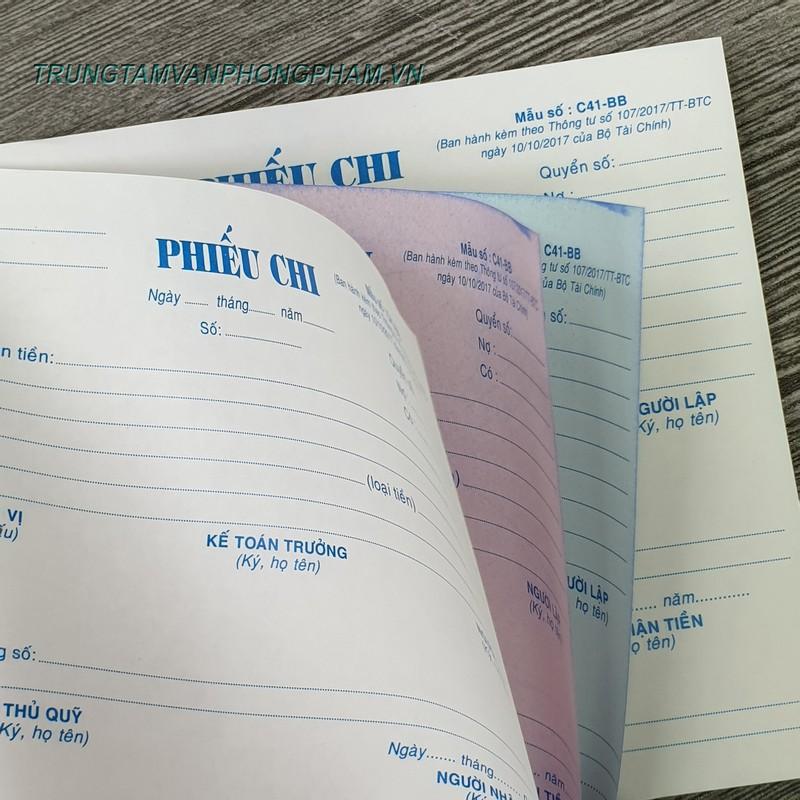 TRUNGTAMVANPHONGPHAM.VN
Mẫu số : C41-BB
(Ban hành kèm theo Thông tư số 107/2017/TT-BTC
ngày 10/10/2017 của Bộ Tài Chính)
PHIẾU CHI
Quyển số:
Nợ :
PHIẾU CHI
Ngày ...... tháng..... năm
Số:
tiền:
(loại tiền)
VỊ
KẾ TOÁN TRƯỞNG
(Ký, họ tên)
số:
THỦ QUỸ
(Ký, họ tên)
Ngày....... tháng....... năm
NGƯỜI
Mẫu số : C41-BB
(Ban hành kèm theo Thông tư số
ngày 10/10/2017
Quyển số:
Nợ :
Có :
NGƯỜI
(Ký, họ tên)
C41-BB
tư số 107/2017/TT-BTC
của Bộ Tài Chính)
số:
LẬP
họ tên)
LẬP
họ tên)
năm............
TIỀN
họ tên)